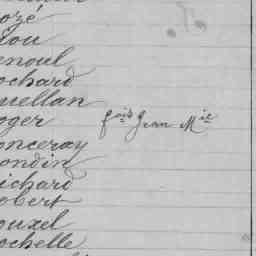 ozé
lou
enoul
ochard
uellan
oger fois Jean Mie
onceray
ondin
ichard
obert
ouxel
ochelle